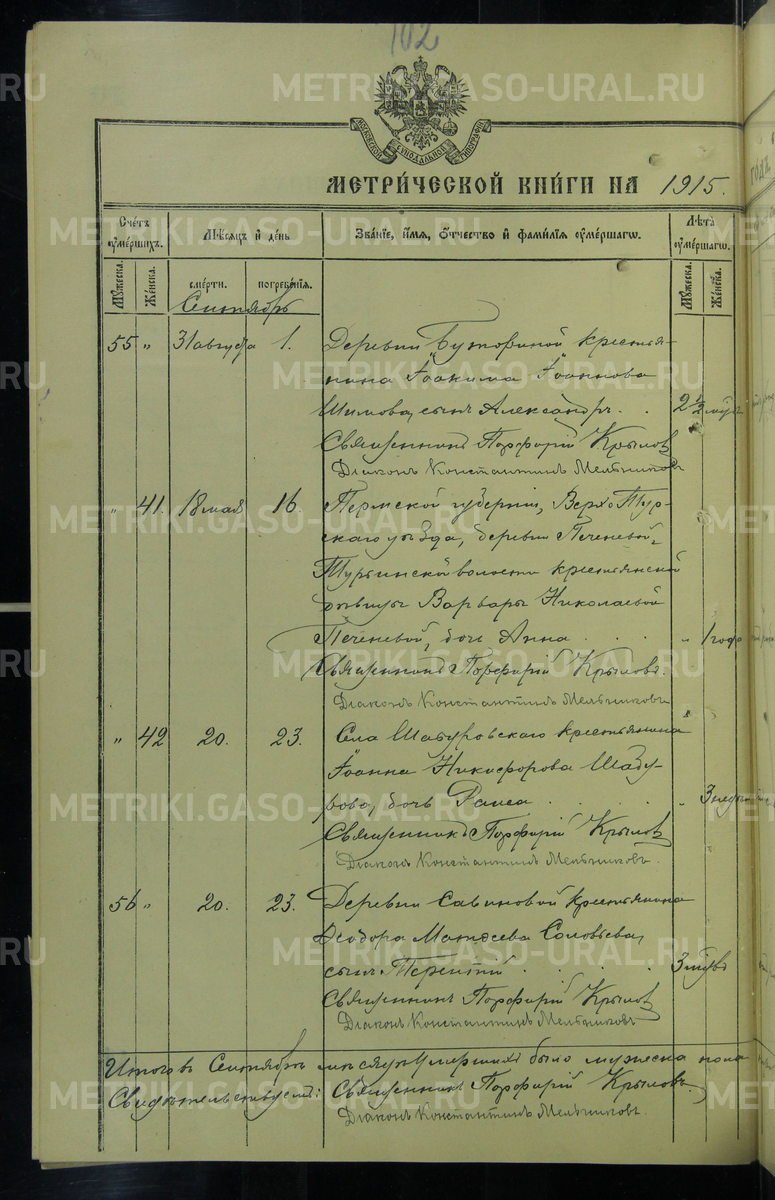 102
МОСКОВСКОЙ СѴНОДАЛЬНОЙ ТИПОГРАФІИ
МЕТРИ́ЧЕСКОЙ КНИ́ГИ НА 1915.
Счетъ ᲂу҆ме́ршихъ.
Мѣ́сяцъ и҆ де́нь
Зва́ніе, и҆́мя, ѻ҆́тчество и҆ фами́лія ᲂу҆ме́ршагѡ.
Лѣта̀ ᲂу҆ме́ршагѡ.
Мꙋ́жеска.
Же́нска.
сме́рти.
погребе́нія.
Мꙋ́жеска.
Же́нска.
Сентябрь
55 " 31 августа 1. Деревни Буториной крестья-
нина Іоакима Іоаннова
Шимова, сынъ Александръ . . 2 1/2 мѣс
Священникъ Порфирій Крыловъ
Діаконъ Константинъ Мельниковъ
" 41. 18 мая 16. Пермской губерніи, Верхотур-
скаго уѣзда, деревни Печеневой,
Турьинской волости крестьянской
дѣвицы Варвары Николаевой
Печеневой, дочь Анна . . . " 1 года
Священникъ Порфирій Крыловъ.
Діаконъ Константинъ Мельниковъ
" 42 20. 23. Села Шабуровскаго крестьянина
Іоанна Никифорова Шабу-
рова, дочь Раиса . . . . " 3 недѣл
Священникъ Порфирій Крыловъ
Діаконъ Константинъ Мельниковъ.
56 " 20. 23. Деревни Савиновой крестьянина
Ѳеодора Матѳеева Соловьева,
сынъ Терентій . . . . . 3 мѣсъ
Священникъ Порфирій Крыловъ
Діаконъ Константинъ Мельниковъ
Итого въ Сентябрѣ мѣсяцѣ умершихъ было мужеска пола
Свидѣтельствуемъ: Священникъ Порфирій Крыловъ.
Діаконъ Константинъ Мельниковъ.
METRIKI.GASO-URAL.RU